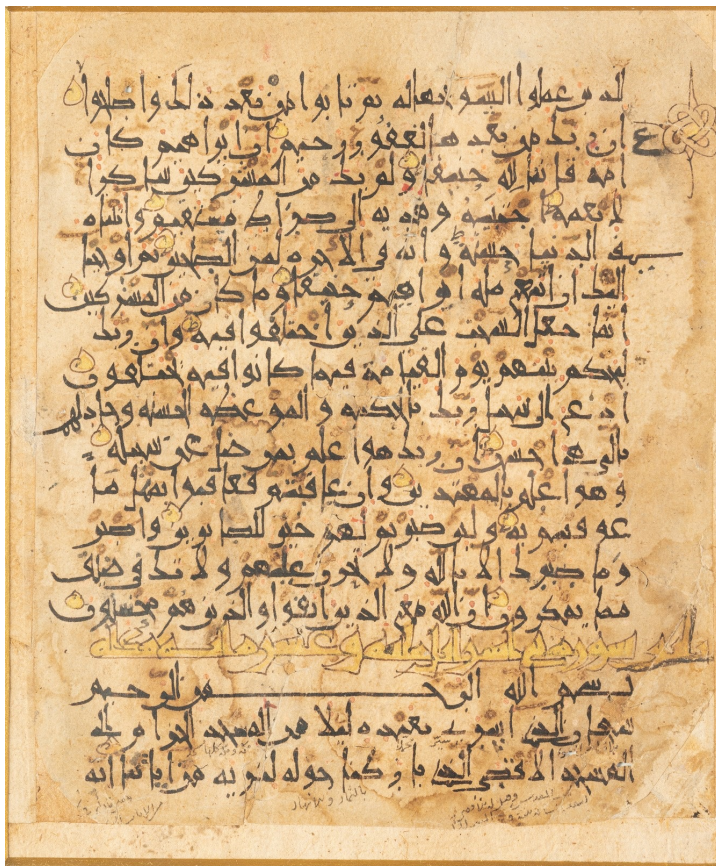 للذين عملوا السوء بجهاله ثم تابوا من بعد ذلك واصلحوا
ان ربك من بعدها لغفور رحيم ان ابراهيم كان
امه قانتا لله حنيفا ولم يك من المشركين شاكرا
لانعمه اجتبيه وهديه الى صراط مستقيم واتيناه
في الدنيا حسنه وانه في الاخره لمن الصلحين ثم اوحينا
اليك ان اتبع مله ابراهيم حنيفا وما كان من المشركين
انما جعل السبت على الذين اختلفوا فيه وان ربك
ليحكم بينهم يوم القيامه فيما كانوا فيه يختلفون
ادع الى سبيل ربك بالحكمه والموعظه الحسنه وجادلهم
بالتي هي احسن ان ربك هو اعلم بمن ضل عن سبيله
وهو اعلم بالمهتدين وان عاقبتم فعاقبوا بمثل ما
عوقبتم به ولين صبرتم لهو خير للصابرين واصبر
وما صبرك الا بالله ولا تحزن عليهم ولا تك في ضيق
مما يمكرون ان الله مع الذين اتقوا والذين هم محسنون
سوره بني اسرايل وعشر
بسم الله الرحمن الرحيم
سبحان الذي اسرى بعبده ليلا من المسجد الحرام الى
المسجد الاقصى الذي باركنا حوله لنريه من اياتنا انه